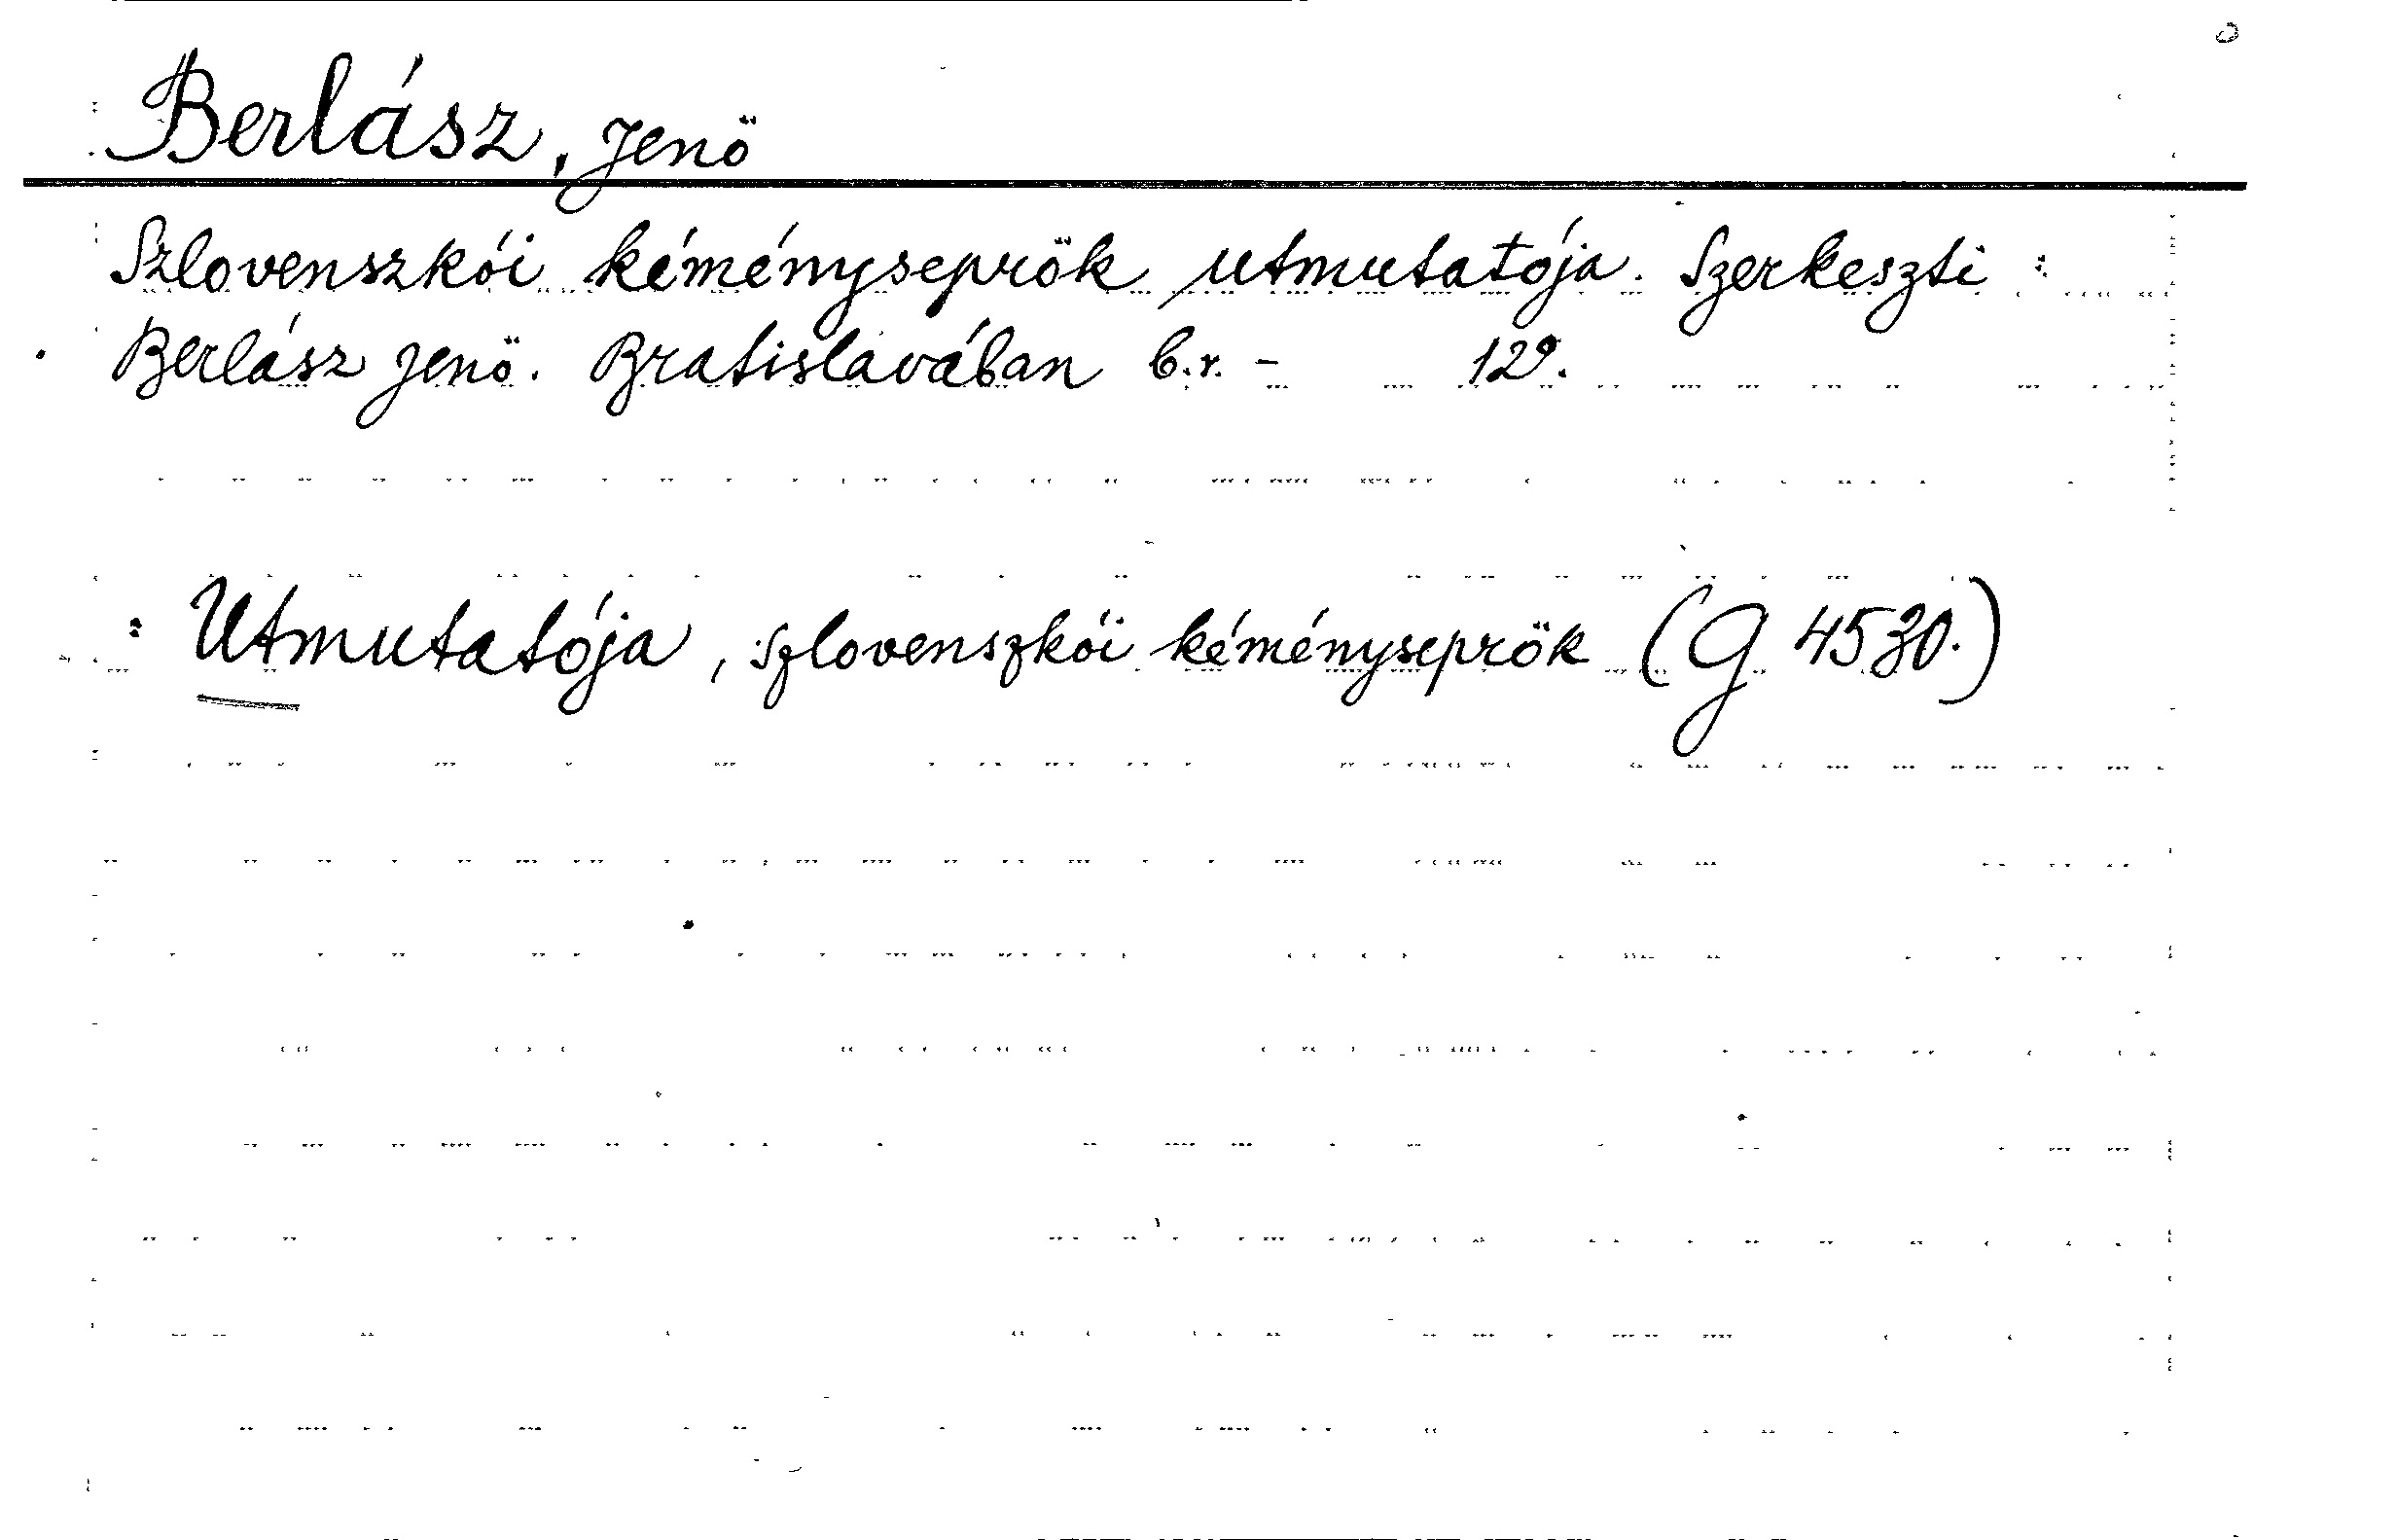 Berlász, Jenő
Szlovenszkói kéményseprők utmutatója. Szerkeszti:
Berlász Jenő. Bratislavában b.r. - 12°.
: Utmutatója, szlovenszkói kéményseprők (G 4530.)